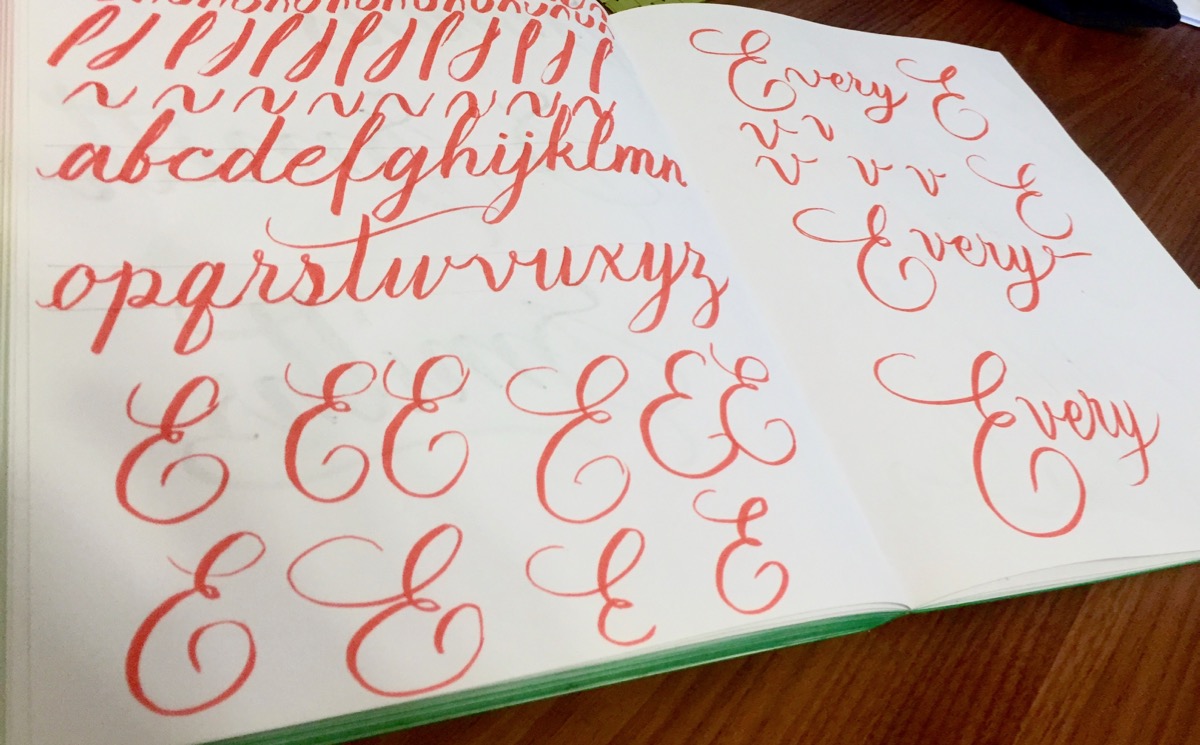 abcdefghijklmn
opqrstuvwxyz
E E E E E E
E E E E
Every E
v v
v v v E
Every
Every